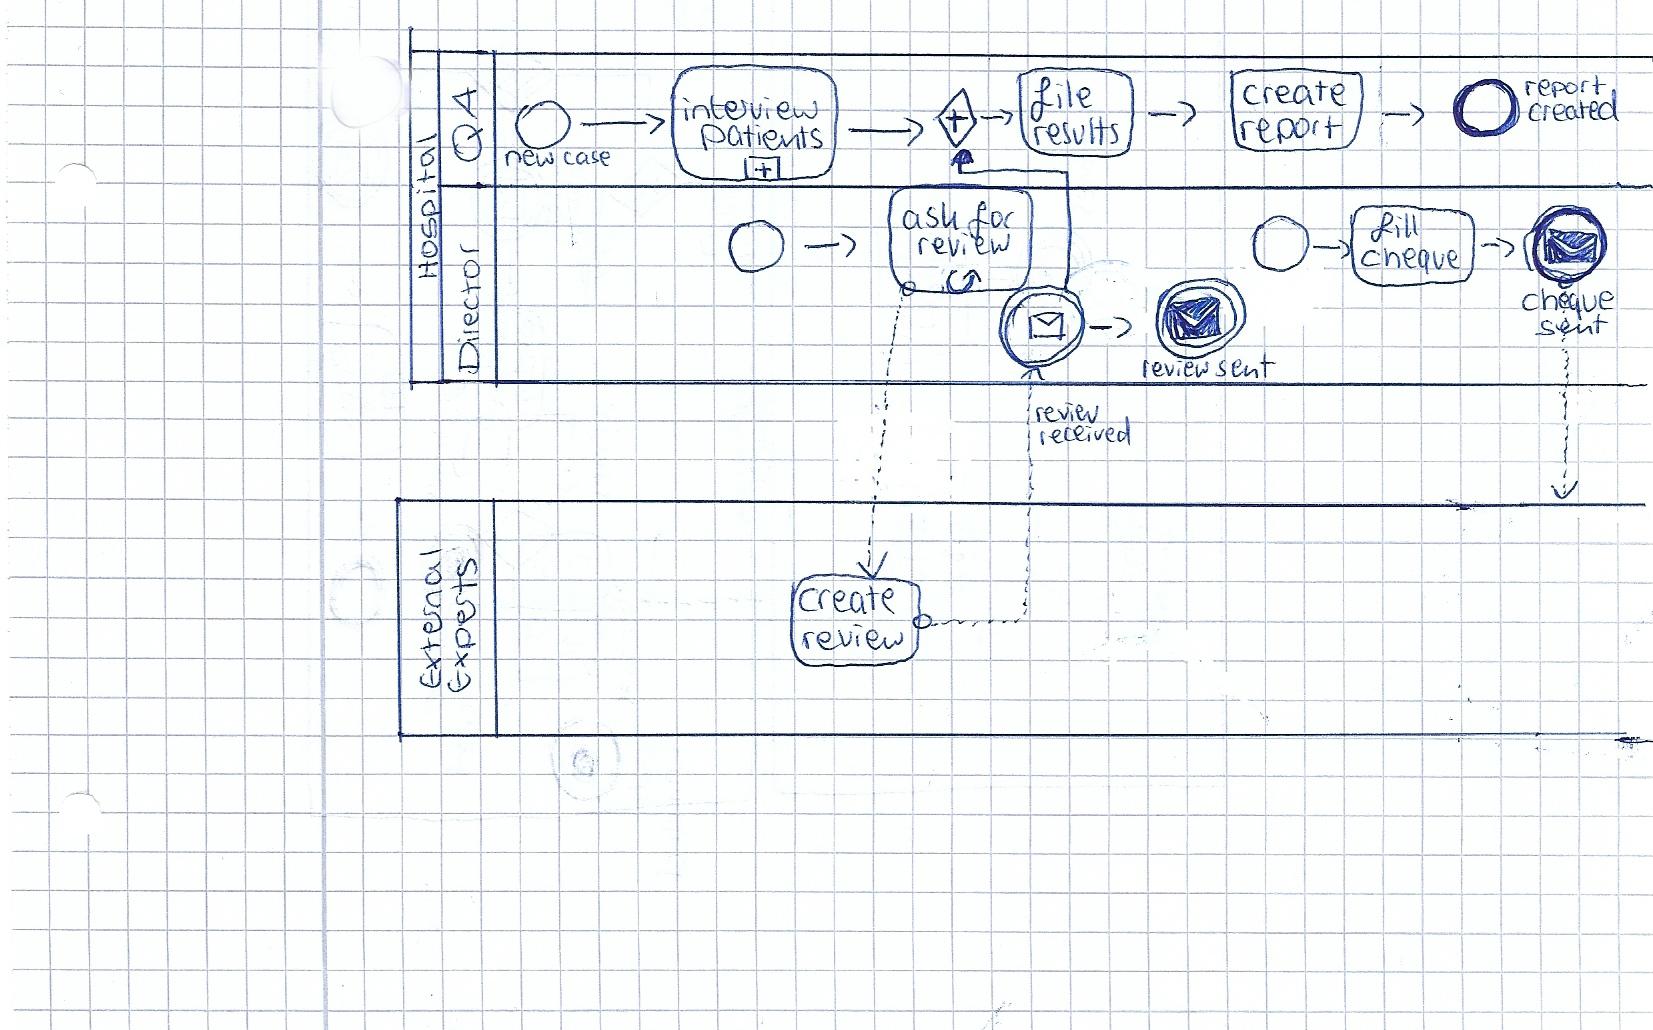 Hospital
QA
new case
interview
patients
file
results
create
report
report
created
Director
ask for
review
review sent
fill
cheque
cheque
sent
review
received
External
experts
create
review